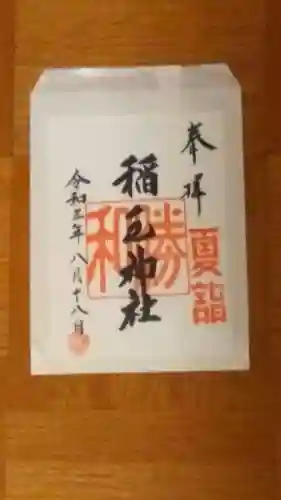 奉拝
夏詣
稲毛神社
勝和
令和三年八月十八日